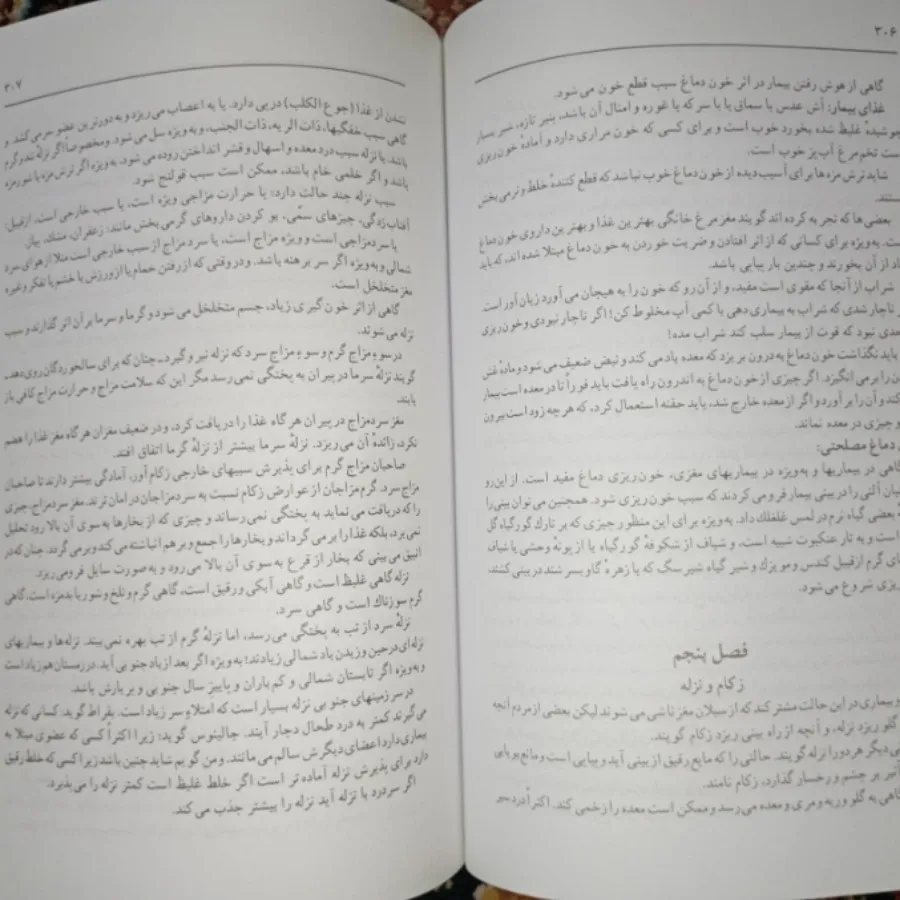 ۳۰۶
گاهی از هوش رفتن بیمار در اثر خون دماغ سبب قطع خون می شود.
غذای بیمار: آش عدس با سماق یا با سرکه یا غوره و امثال آن باشد، پنیر تازه، شیر بسیار
جوشیدهٔ غلیظ شده بخورد خوب است و برای کسی که خون مراری دارد و آمادهٔ خون ریزی
است تخم مرغ آب پز خوب است.
شاید ترش مزه ها برای آسیب دیده از خون دماغ خوب نباشد که قطع کنندهٔ خلط و نرمی بخش
هستند.
بعضی ها که تجربه کرده اند گویند مغز مرغ خانگی بهترین غذا و بهترین داروی خون دماغ
است. به ویژه برای کسانی که از اثر افتادن و ضربت خوردن به خون دماغ مبتلا شده اند، که باید
زیاد از آن بخورند و چندین بار پیاپی باشد.
شراب از آنجا که مقوی است مفید، و از آن رو که خون را به هیجان می آورد زیان آور است.
ناچار شدی که شراب به بیماری دهی با کمی آب مخلوط کن! اگر ناچار نبودی و خون ریزی
بحدی نبود که قوت از بیمار سلب کند شراب مده!
باید نگذاشت خون دماغ به درون بریزد که معده باد می کند و نبض ضعیف می شود و مادهٔ غش
را بر می انگیزد. اگر چیزی از خون دماغ به اندرون راه یافت باید فوراً تا در معده است بیمار
کند و آن را بر آورد و اگر از معده خارج شد، باید حقنه استعمال کرد، که هر چه زود است بیرون
و چیزی در معده نماند.
دماغ مصلحتی:
گاهی در بیماریها و به ویژه در بیماریهای مغزی، خون ریزی دماغ مفید است. از این رو
آلتی را در بینی بیمار فرو می کردند که سبب خون ریزی شود. همچنین می توان بینی را
بعضی گیاه نرم در لمس غلغلک داد. به ویژه برای این منظور چیزی که بر تارک گورگیاه گل
است و به تار عنکبوت شبیه است، و شیاف از شکوفهٔ گورگیاه یا از پونهٔ وحشی یا شیاف
های گرم از قبیل کندس و مویزک و شیر گیاه شیر سگ که با زهرهٔ گاو بسرشتند در بینی کنند،
ریزی شروع می شود.
فصل پنجم
زکام و نزله
بیماری در این حالت مشترکند که از سیلان مغز ناشی می شوند لیکن بعضی از مردم آنچه
گلو ریزد نزله، و آنچه از راه بینی ریزد زکام گویند.
دیگر هر دو را نزله گویند. حالتی را که مایع رقیق از بینی آید و پیاپی است و مانع بویایی
تأثیر بر چشم و رخسار گذارد، زکام نامند.
گاهی به گلو و ریه و مری و معده می رسد و ممکن است معده را زخمی کند. اکثراً درد سیر
۳۰۷
نشدن از غذا (جوع الکلب) در پی دارد. یا به اعصاب می ریزد و به دورترین عضو سر می کشد. و
گاهی سبب خفگیها، ذات الریه، ذات الجنب، و به ویژه سل می شود. و مخصوصاً اگر نزله تند و گرم
باشد. یا نزله سبب درد معده و اسهال و قشر انداختن روده می شود. به ویژه اگر ترش مزه یا شور مزه
باشد و اگر خلمی خام باشد، ممکن است سبب قولنج شود.
سبب نزله چند حالت دارد: یا حرارت مزاجی ویژه است، یا سبب خارجی است. ازقبیل:
آفتاب زدگی، چیزهای سمّی، بو کردن داروهای گرمی بخش مانند: زعفران، مشک، پیاز.
یا سردمزاجی است و ویژه مزاج است، یا سرد مزاج از سبب خارجی است مثلاً از هوای سرد
شمالی و به ویژه اگر سر برهنه باشد. و در وقتی که از رفتن حمام یا از ورزش یا خشم یا تفکر و غیره
مغز متخلخل است.
گاهی از اثر خون گیری زیاد، جسم متخلخل می شود و گرما و سرما بر آن اثر گذارند و سبب
نزله می شوند.
در سوءِ مزاج گرم و سوءِ مزاج سرد که نزله نیرو گیرد ـ چنان که برای سالخوردگان روی دهد ـ
گویند نزلهٔ سرما در پیران به پختگی نمی رسد مگر این که سلامت مزاج و حرارت مزاج کافی باز
یابند.
مغز سردمزاج در پیران هرگاه غذا را دریافت کرد، و در ضعیف مغزان هرگاه مغز غذا را هضم
نکرد، زائدهٔ آن می ریزد. نزلهٔ سرما بیشتر از نزلهٔ گرما اتفاق افتد.
صاحبان مزاج گرم برای پذیرش سببهای خارجی زکام آور، آمادگی بیشتر دارند تا صاحبان
مزاج سرد. گرم مزاجان از عوارض زکام نسبت به سردمزاجان در امان ترند. مغز سردمزاج، چیزی
را که دریافت می نماید به پختگی نمی رساند و چیزی که از بخارها به سوی آن بالا رود تحلیل
نمی برد، بلکه غذا را بر می گرداند و بخارها را جمع و بر هم انباشته می کند و بر می گردد. چنان که در
انبیق می بینی که بخار از قرع به سوی آن بالا می رود و به صورت سایل فرو می ریزد.
نزله گاهی غلیظ است و گاهی آبکی و رقیق است، گاهی گرم و تلخ و شور یا بدمزه است، گاهی
گرم سوزناک است و گاهی سرد.
نزلهٔ سرد از تب به پختگی می رسد، اما نزلهٔ گرم از تب بهره نمی بیند. نزله ها و بیماریهای
نزله ای در حین وزیدن باد شمالی زیادند؛ به ویژه اگر بعد از باد جنوبی آید. در زمستان هم زیاد است
و به ویژه اگر تابستان شمالی و کم باران و پاییز سال جنوبی و بربارش باشد.
در سرزمینهای جنوبی نزله بسیار است که امتلاءِ سر زیاد است. بقراط گوید: کسانی که نزله
می گیرند کمتر به درد طحال دچار آیند. جالینوس گوید: زیرا اکثراً کسی که عضوی مبتلا به
بیماری دارد اعضای دیگرش سالم می مانند. و من گویم شاید چنین باشد زیرا کسی که خلط رقیق
دارد برای پذیرش نزله آماده تر است اگر خلط غلیظ است کمتر نزله را می پذیرد.
اگر سردرد با نزله آید نزله را بیشتر جذب می کند.